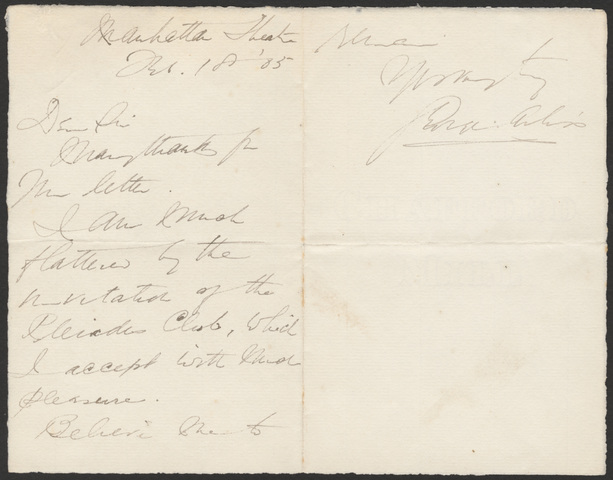 Manhattan Theatre
Feb. 18th '05
Dear Sir
Many thanks for
your letter.
I am much
flattered by the
invitation of the
Pleiades Club, which
I accept with much
pleasure.
Believe me to
remain
Yours very truly
George Arliss